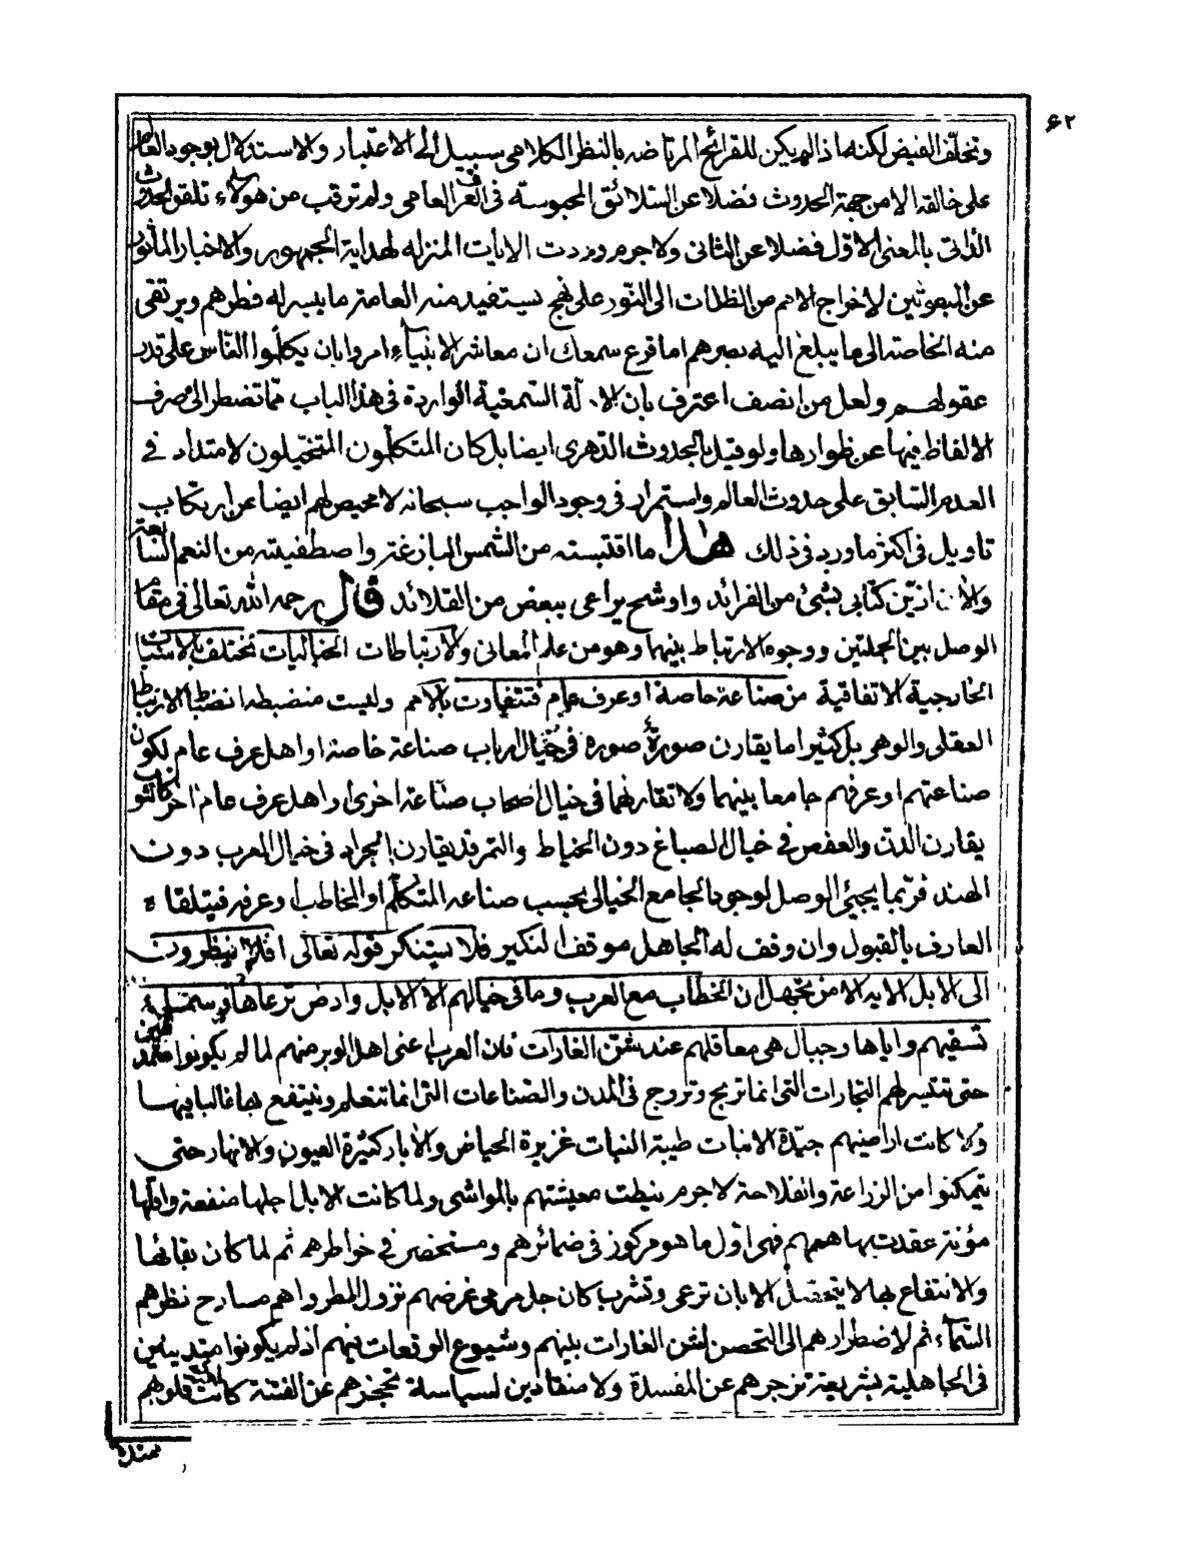 ٦٢
وتخلّف الفيض لكنه اذ لم يكن للقرائح المرتاضه بالنظر الكلامى سبيل الى الاعتبار والاستدلال بوجود العالم
على خالقه الا من جهة الحدوث فضلا عن السلائق المحبوسته فى العرف العامى ولم ترقب من هؤلاء تلقو الحدوث
الذاتى بالمعنى الاوّل فضلا عن الثانى ولا جرم وردت الايات المنزله لهداية الجمهور والاخبار المأثور
عن المبعوثين لاخراج الامم من الظلمات الى النّور على نهج يستفيد منه العامة ما يسر له فطرهم ويرتقى
منه الخاصة الى ما يبلغ اليه بصرهم اما قرع سمعك ان معاشر الانبياء امروا بان يكلّموا النّاس على قدر
عقولهم ولعل من انصف اعترف بان الادلة السّمعية الواردة فى هذا الباب ممّا تضطر الى صرف
الالفاظ فيها عن ظواهرها ولو قيل بالحدوث الدّهرى ايضا بل كان المتكلّمون المتخيّلون لامتداد فى
العدم السّابق على حدوث العالم واستمرار فى وجود الواجب سبحانه لا محيص لهم ايضا عن ارتكاب
تاويل فى اكثر ما ورد فى ذلك هذا ما اقتبسته من الشّمس البازغة واصطفيته من النعم السّابغة
والان ازيّن كتابى بشئ من الفرائد واوشح يراعى ببعض من القلائد قال رحمه الله تعالى فى مقام
الوصل بين الجملتين ووجوه الارتباط بينهما وهو من علم المعانى والارتباطات الخياليات تختلف بالاسباب
الخارجية الاتفاقية من صناعة خاصة او عرف عام فتتفاوت بالامم وليست منضبطه انضباط الارتباط
العقلى والوهمى بل كثيرا ما يقارن صورة صورة فى خيال ارباب صناعة خاصة او اهل عرف عام لكون
صناعتهم او عرفهم جامعا بينهما ولا تقارنها فى خيال اصحاب صناعة اخرى او اهل عرف عام اخر
يقارن الدن والعفص فى خيال الصباغ دون الخياط والتمر قد يقارن الجراد فى خيال العرب دون
الهند فربّما يجيئ الوصل لوجود الجامع الخيالى بحسب صناعة المتكلّم او المخاطب او عرفه فيتلقاه
العارف بالقبول وان وقف له الجاهل موقف النكير فلا يستنكر قوله تعالى افلا ينظرون
الى الابل الاية الا من يجهل ان الخطاب مع العرب وما فى خيالهم الا الابل وارض ترعاها وسمآء
تسقيهم واياها وجبال هى معاقلهم عند شن الغارات فان العرب اعنى اهل الوبر منهم لما لم يكونوا
حتى تتيسر لهم التجارات التى انما تربح وتروج فى المدن والصّناعات التى انما تتعلم وينتفع بها غالبا فيها
ولا كانت اراضيهم جيّدة الانبات طيبة النبات غزيرة الحياض والابار كثيرة العيون والانهار حتى
يتمكنوا من الزراعة والفلاحة لا جرم نيطت معيشتهم بالمواشى ولما كانت الابل اجلها منفعة واقلها
مؤنة عقدت بها هممهم فهى اوّل ما هو مركوز فى ضمائرهم ومستحضر فى خواطرهم ثم لما كان بقائها
والانتفاع بها لا يتحصّل الا بان ترعى وتشرب كان جل مرمى غرضهم نزول المطر واهم مسارح نظرهم
السّمآء ثم لاضطرارهم الى التحصن لشن الغارات بينهم وشيوع الوقعات فيهم اذ لم يكونوا متدينين
فى الجاهلية بشريعة تزجرهم عن المفسدة ولا منقادين لسياسة تحجزهم عن الفتنة كانت قلوبهم